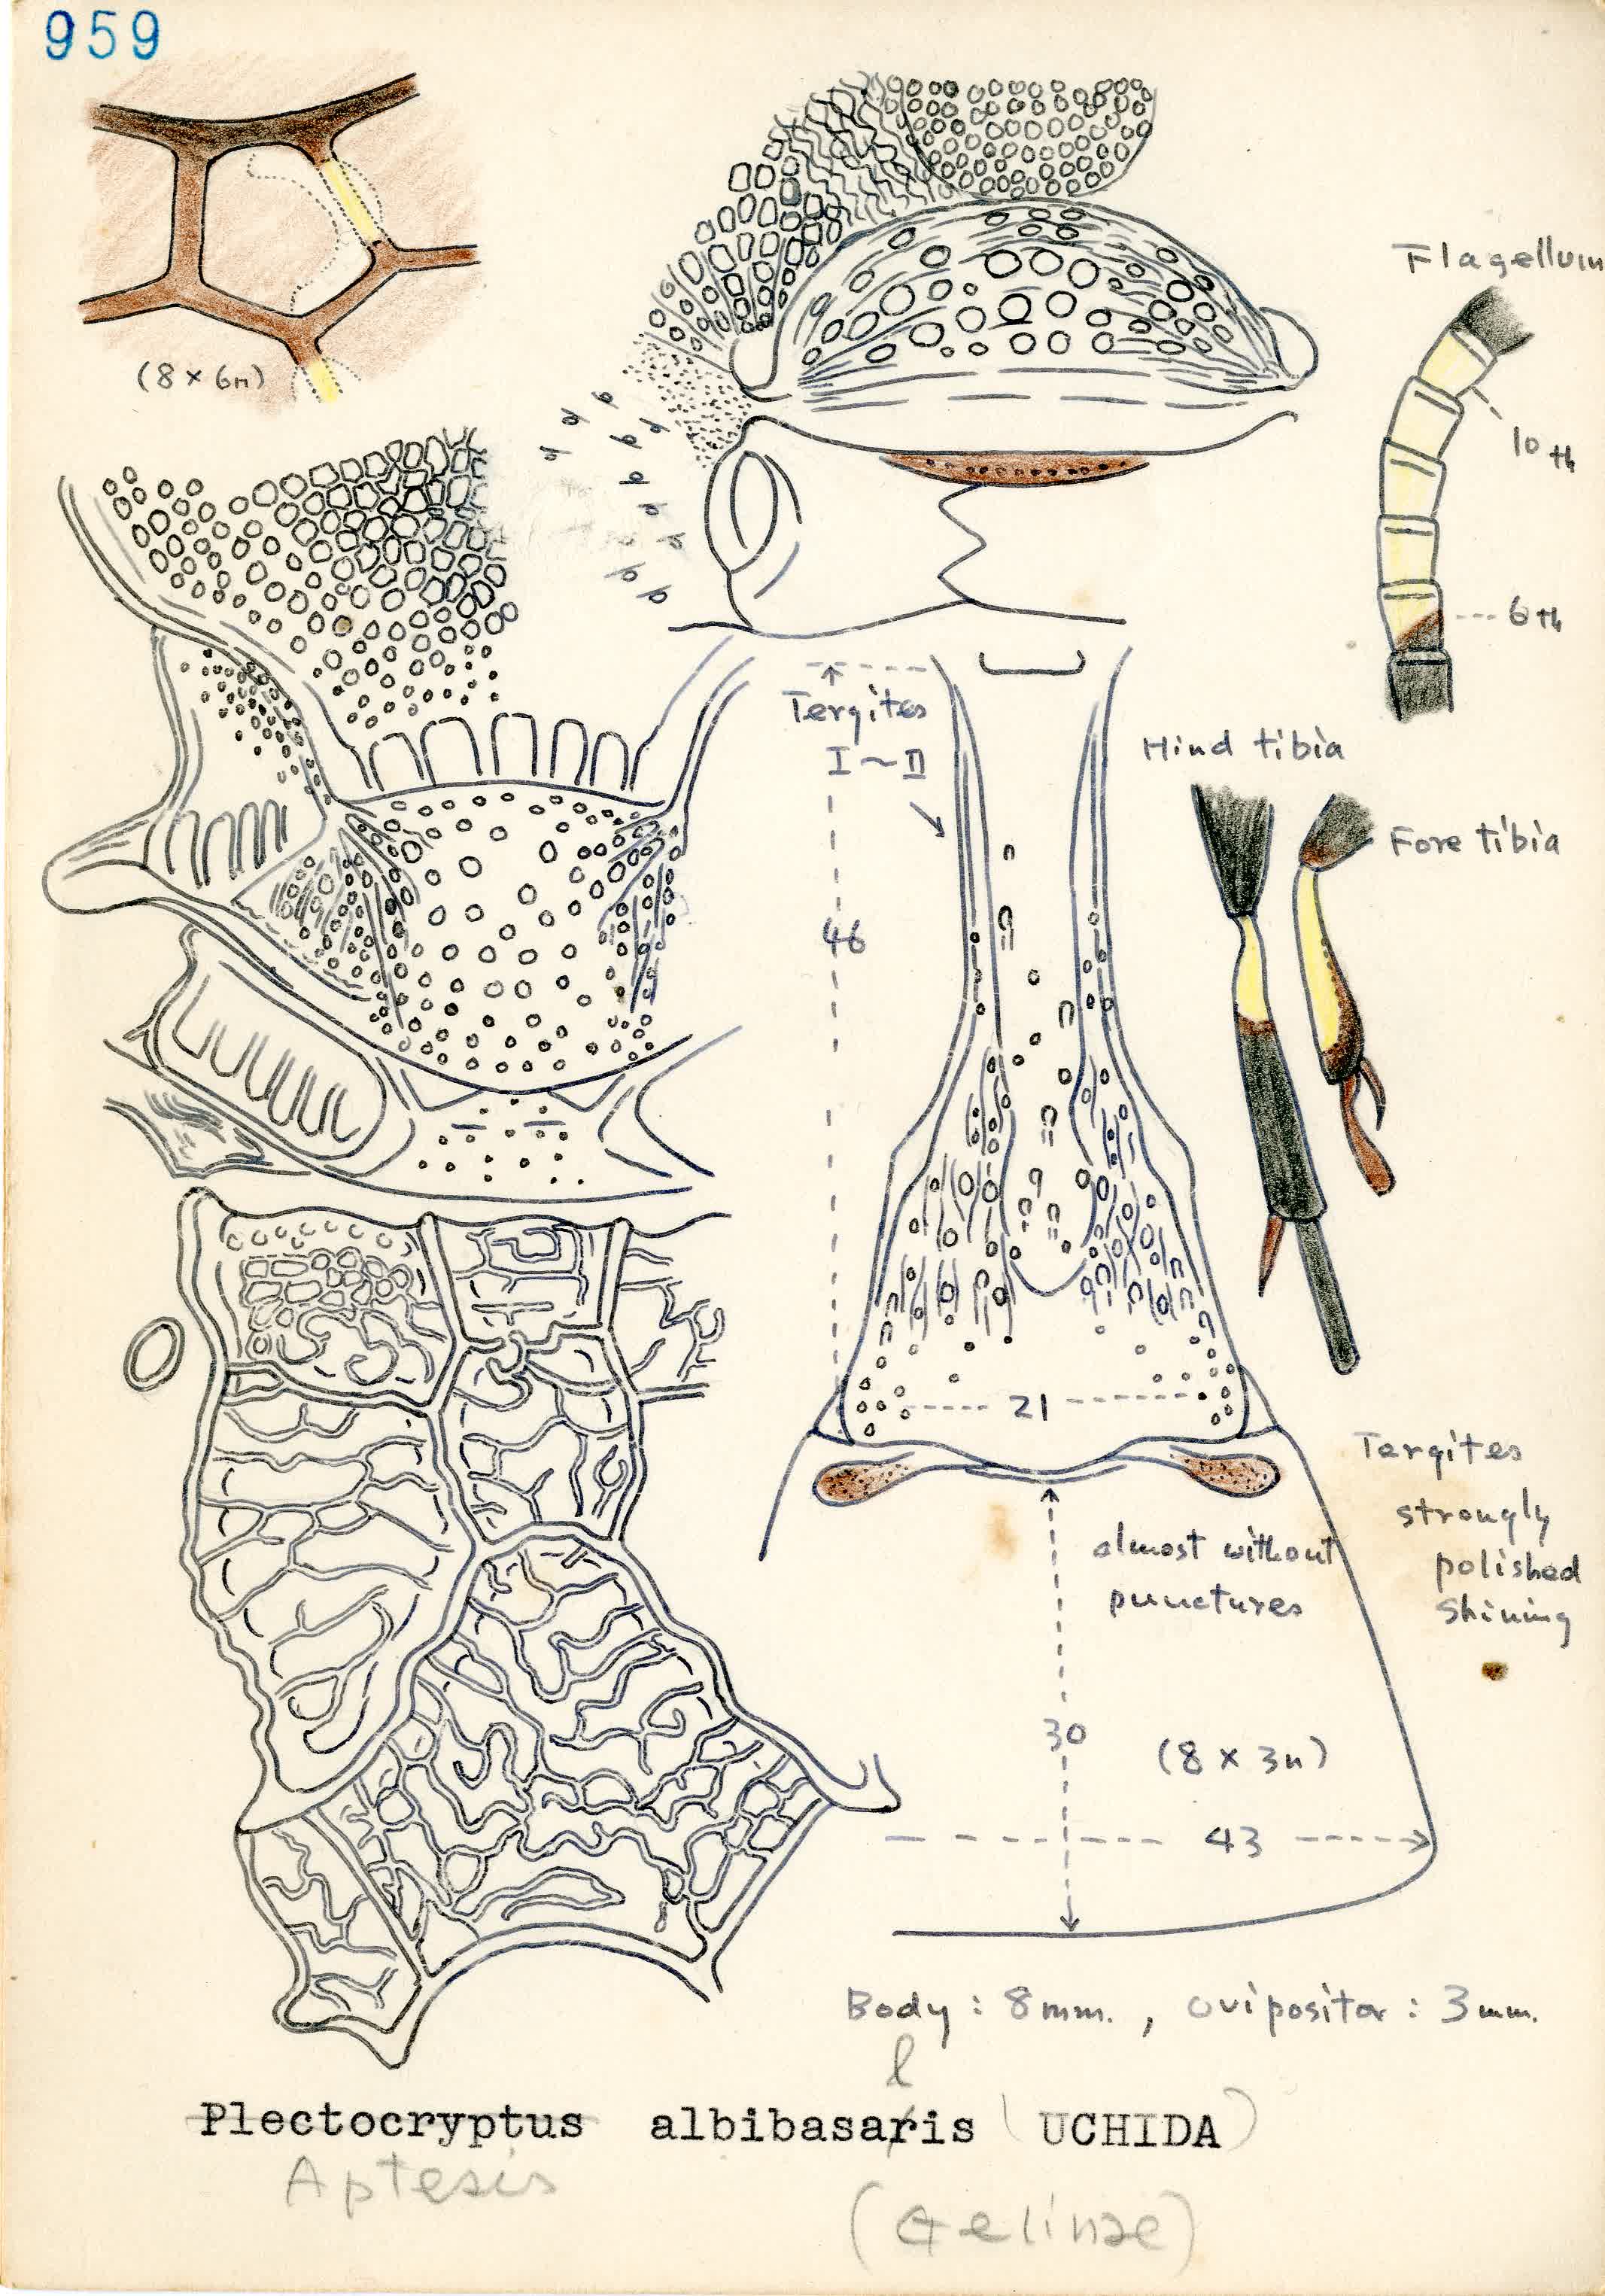 959
(8 × 6n)
Flagellum
10 th
6 th
Tergites
I ~ II
46
Hind tibia
Fore tibia
21
Tergites
strongly
polished
shining
almost without
punctures
30
(8 × 3n)
43
Body : 8 mm. , ovipositor : 3 mm.
l
Plectocryptus albibasaris (UCHIDA)
Aptesis
(Gelinae)